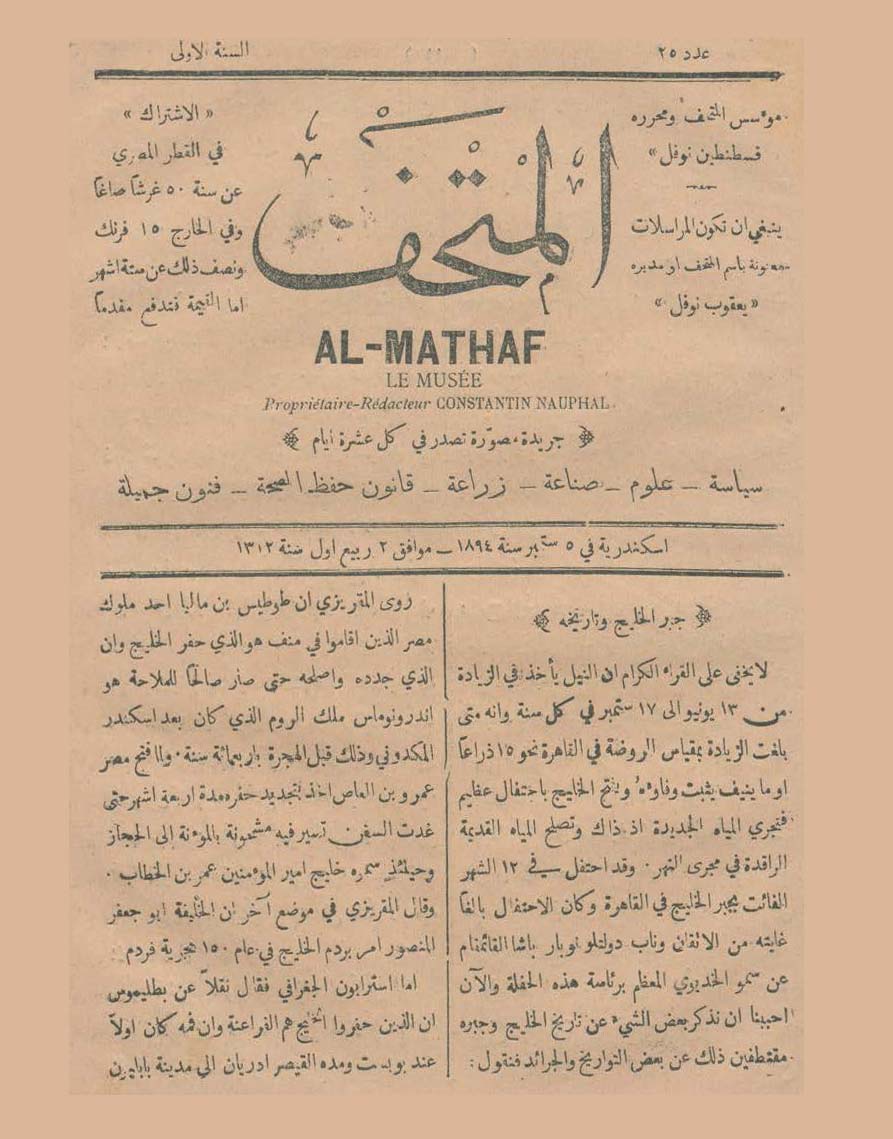 عدد ٢٥
السنة الاولى
موٴسس المتحف ومحرره
قسطنطين نوفل »
ينبغي ان تكون المراسلات
معنونة باسم المتحف او مديره
« يعقوب نوفل »
المتحف
« الاشتراك »
في القطر المصري
عن سنة ٥٠ غرشاً صاغاً
وفي الخارج ١٥ فرنك
ونصف ذلك عن ستة اشهر
اما القيمة فتدفع مقدماً
AL-MATHAF
LE MUSÉE
Propriétaire-Rédacteur CONSTANTIN NAUPHAL.
﴿ جريدة مصوّرة تصدر في كل عشرة ايام ﴾
سياسة – علوم – صناعة – زراعة – قانون حفظ الصحة – فنون جميلة
اسكندرية في ٥ ستمبر سنة ١٨٩٤ – موافق ٢ ربيع اول سنة ١٣١٢
﴿ جبر الخليج وتاريخه ﴾
لا يخفى على القراء الكرام ان النيل يأخذ في الزيادة
من ١٣ يونيو الى ١٧ ستمبر في كل سنة وانه متى
بلغت الزيادة بمقياس الروضة في القاهرة نحو ١٥ ذراعاً
او ما ينيف يثبت وفاوٴه ويفتح الخليج باحتفال عظيم
فتجري المياه الجديدة اذ ذاك وتصلح المياه القديمة
الراقدة في مجرى النهر · وقد احتفل في ١٢ الشهر
الفائت بجبر الخليج في القاهرة وكان الاحتفال بالغاً
غايته من الاتقان وناب دولتلو نوبار باشا القائمقام
عن سمو الخديوي المعظم برئاسة هذه الحفلة والآن
احببنا ان نذكر بعض الشيء عن تاريخ الخليج وجبره
مقتطفين ذلك عن بعض التواريخ والجرائد فنقول :
روى المقريزي ان طوطيس بن ماليا احد ملوك
مصر الذين اقاموا في منف هو الذي حفر الخليج وان
الذي جدده واصلحه حتى صار صالحاً للملاحة هو
اندرونوماس ملك الروم الذي كان بعد اسكندر
المكدوني وذلك قبل الهجرة باربعمائة سنة · ولما فتح مصر
عمرو بن العاص اخذ بتجديد حفره مدة اربعة اشهر حتى
غدت السفن تسير فيه مشحونة بالموٴنة الى الحجاز
وحينئذٍ سموه خليج امير الموٴمنين عمر بن الخطاب ·
وقال المقريزي في موضع آخر ان الخليفة ابو جعفر
المنصور امر بردم الخليج في عام ١٥٠ هجرية فردم ·
اما استرابون الجغرافي فقال نقلاً عن بطليموس
ان الذين حفروا الخليج هم الفراعنة وان فمه كان اولاً
عند ومده القيصر ادريان الى مدينة بابليون